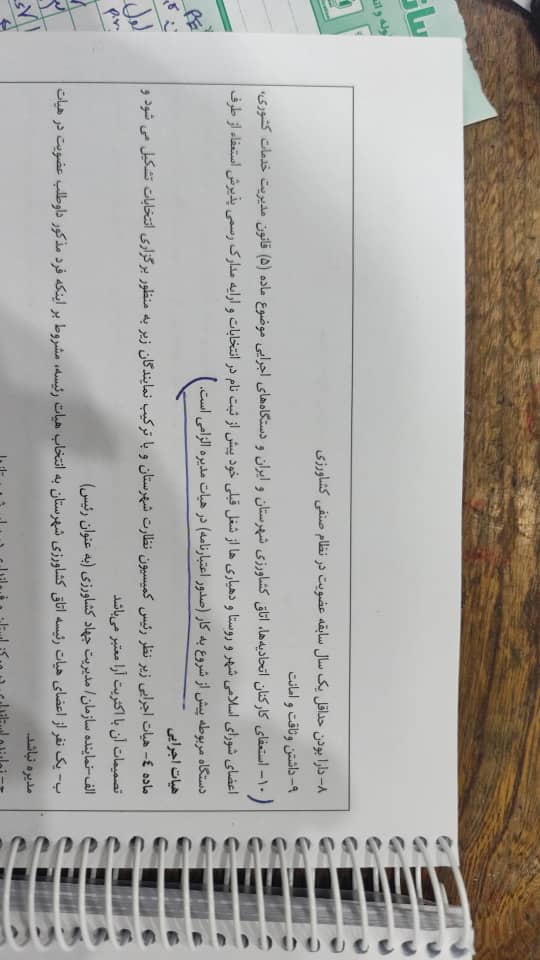 ۸- دارا بودن حداقل یک سال سابقه عضویت در نظام صنفی کشاورزی
۹- داشتن وثاقت و امانت
۱۰- استعفای کارکنان اتحادیه‌ها، اتاق کشاورزی شهرستان و ایران و دستگاه‌های اجرایی موضوع ماده (۵) قانون مدیریت خدمات کشوری،
اعضای شورای اسلامی شهر و روستا و دهیاری ها از شغل قبلی خود پیش از ثبت نام در انتخابات و ارایه مدارک رسمی پذیرش استعفاء از طرف
دستگاه مربوطه پیش از شروع به کار (صدور اعتبارنامه) در هیات مدیره الزامی است.
هیات اجرایی
ماده ٤- هیات اجرایی زیر نظر رئیس کمیسیون نظارت شهرستان و با ترکیب نمایندگان زیر به منظور برگزاری انتخابات تشکیل می شود و
تصمیمات آن با اکثریت آرا معتبر می‌باشد
الف-نماینده سازمان/ مدیریت جهاد کشاورزی (به عنوان رئیس)
ب- یک نفر از اعضای هیات رئیسه اتاق کشاورزی شهرستان به انتخاب هیات رئیسه، مشروط بر اینکه فرد مذکور داوطلب عضویت در هیات
مدیره نباشد.
ج- نماینده استانداری در مرکز استان و فرمانداری در